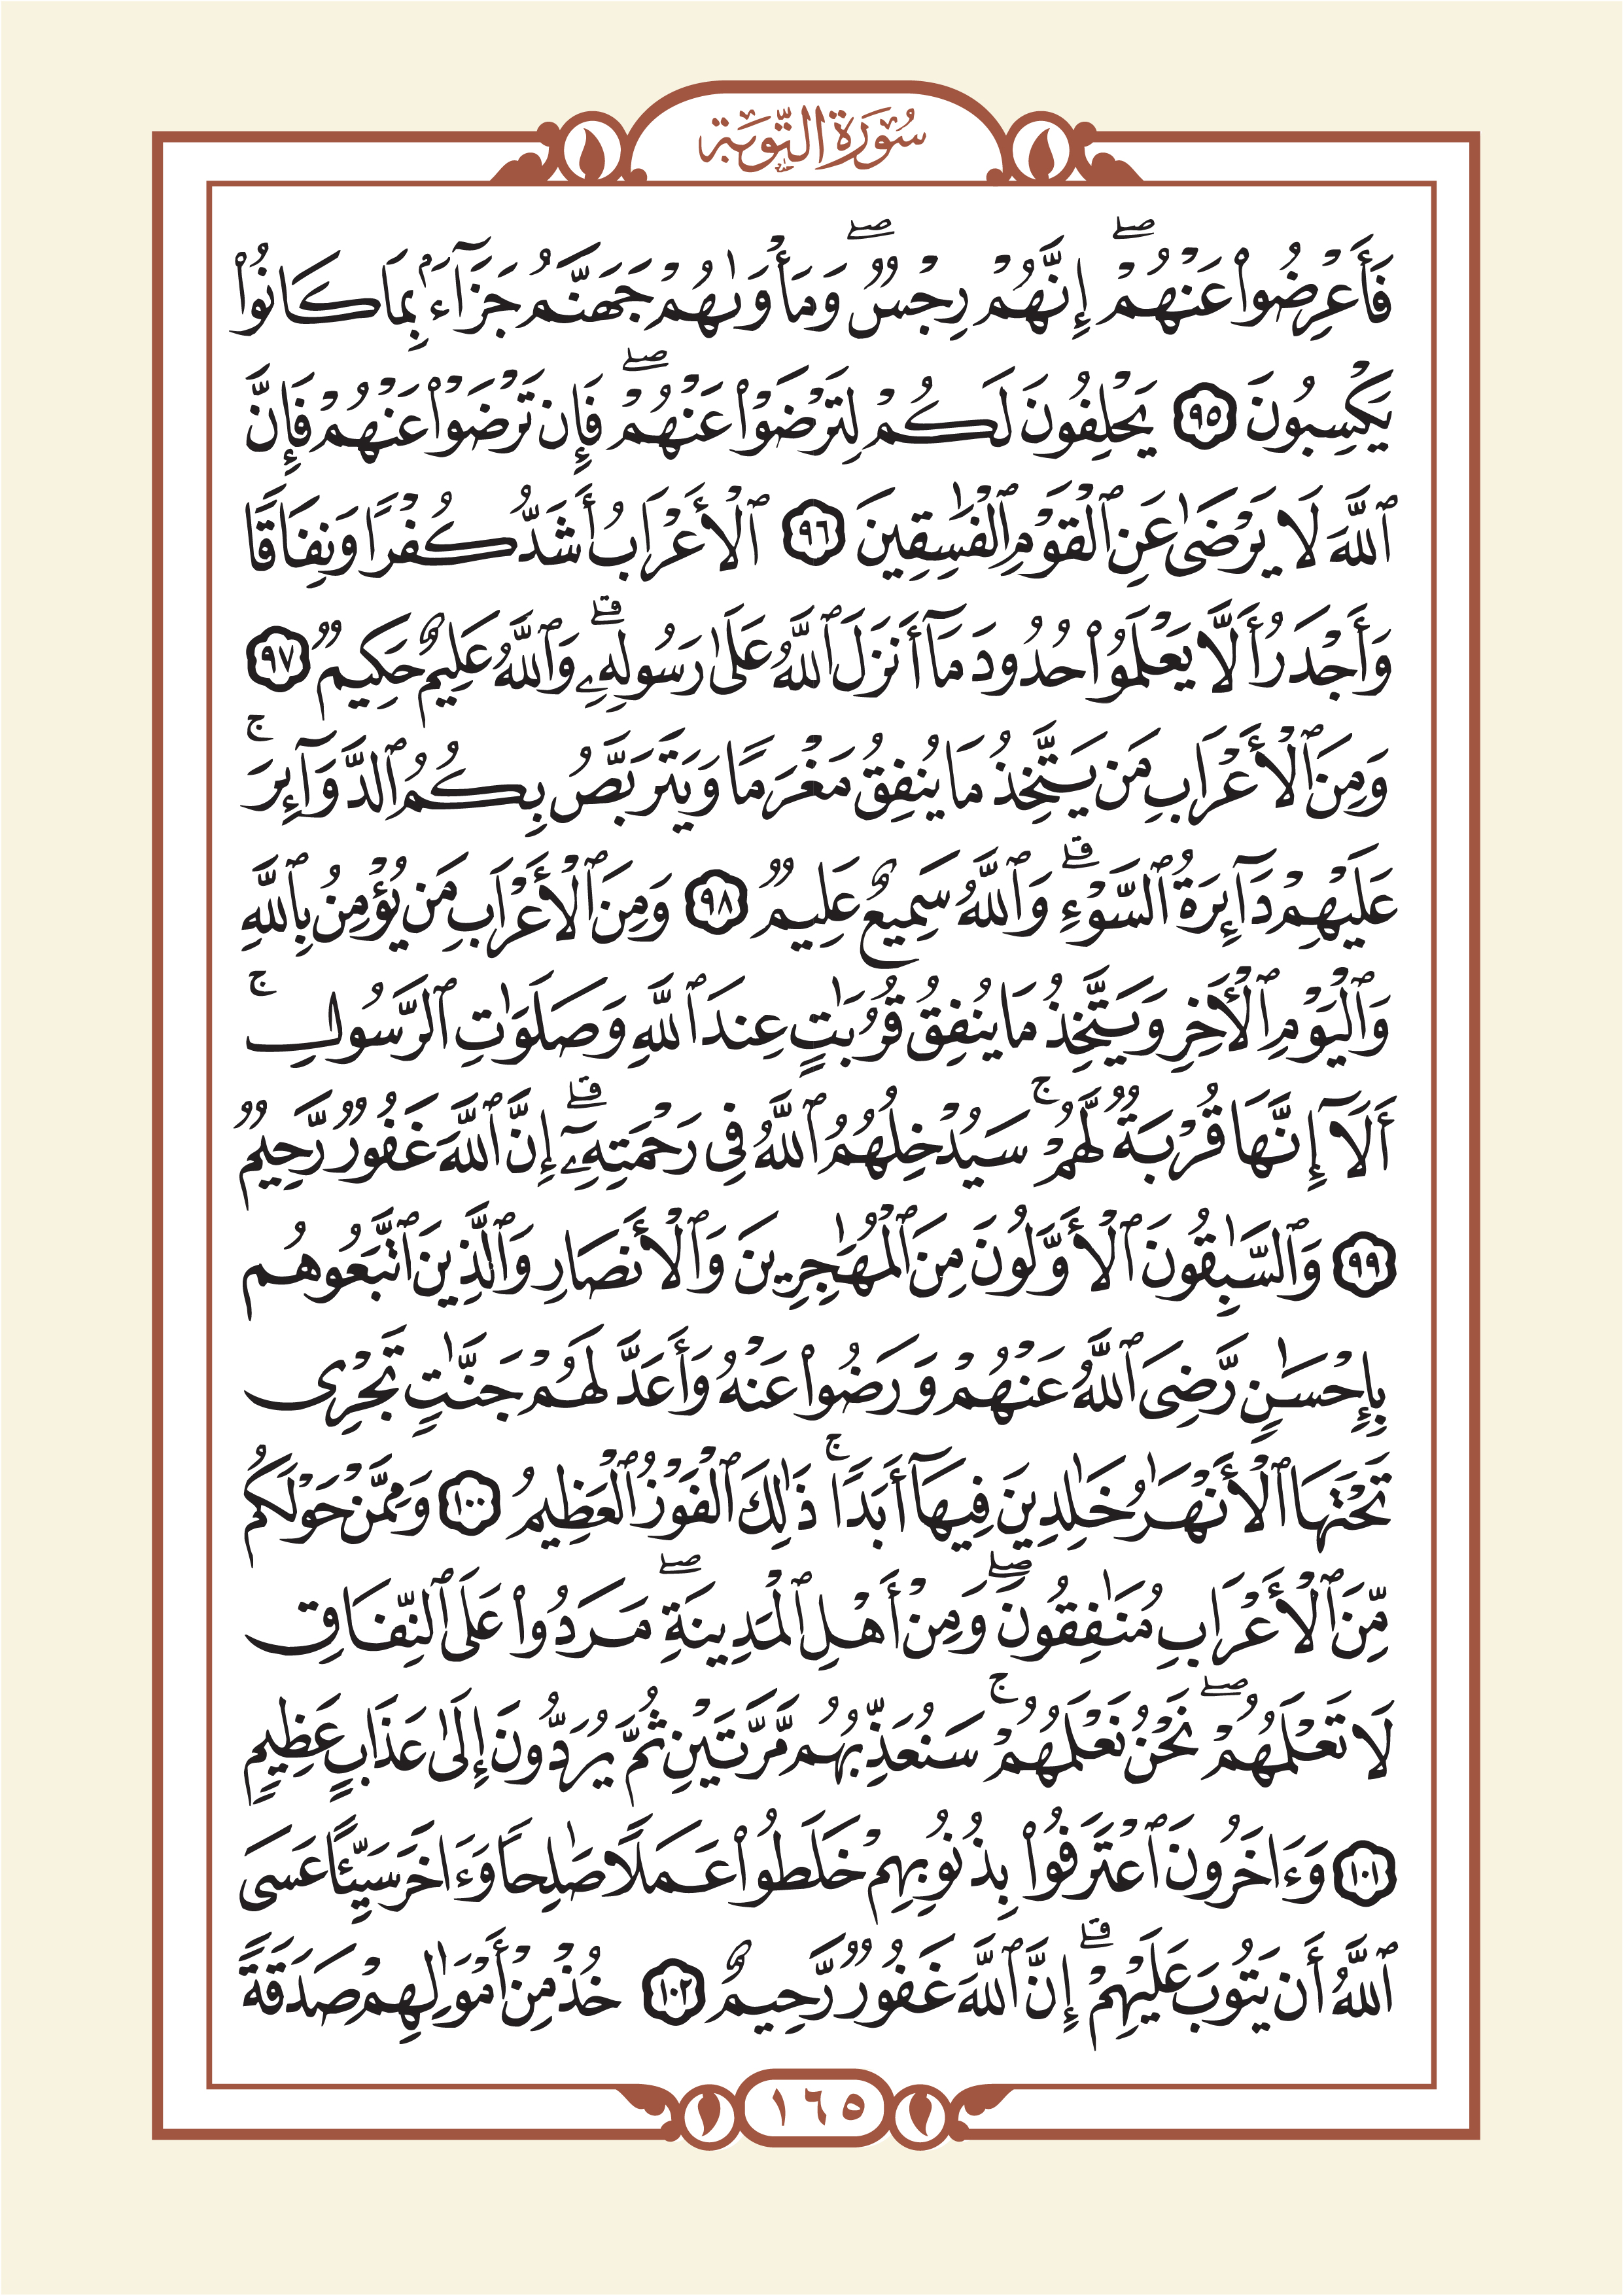 سُورَةُ التَّوْبَةِ
فَأَعْرِضُوا۟ عَنْهُمْ ۖ إِنَّهُمْ رِجْسٌۭ ۖ وَمَأْوَىٰهُمْ جَهَنَّمُ جَزَآءًۢ بِمَا كَانُوا۟
يَكْسِبُونَ ٩٥ يَحْلِفُونَ لَكُمْ لِتَرْضَوْا۟ عَنْهُمْ ۖ فَإِن تَرْضَوْا۟ عَنْهُمْ فَإِنَّ
ٱللَّهَ لَا يَرْضَىٰ عَنِ ٱلْقَوْمِ ٱلْفَٰسِقِينَ ٩٦ ٱلْأَعْرَابُ أَشَدُّ كُفْرًا وَنِفَاقًا
وَأَجْدَرُ أَلَّا يَعْلَمُوا۟ حُدُودَ مَآ أَنزَلَ ٱللَّهُ عَلَىٰ رَسُولِهِۦ ۗ وَٱللَّهُ عَلِيمٌ حَكِيمٌۭ ٩٧
وَمِنَ ٱلْأَعْرَابِ مَن يَتَّخِذُ مَا يُنفِقُ مَغْرَمًا وَيَتَرَبَّصُ بِكُمُ ٱلدَّوَآئِرَ ۚ
عَلَيْهِمْ دَآئِرَةُ ٱلسَّوْءِ ۗ وَٱللَّهُ سَمِيعٌ عَلِيمٌۭ ٩٨ وَمِنَ ٱلْأَعْرَابِ مَن يُؤْمِنُ بِٱللَّهِ
وَٱلْيَوْمِ ٱلْأَخِرِ وَيَتَّخِذُ مَا يُنفِقُ قُرُبَٰتٍ عِندَ ٱللَّهِ وَصَلَوَٰتِ ٱلرَّسُولِ ۚ
أَلَآ إِنَّهَا قُرْبَةٌۭ لَّهُمْ ۚ سَيُدْخِلُهُمُ ٱللَّهُ فِى رَحْمَتِهِۦٓ ۗ إِنَّ ٱللَّهَ غَفُورٌۭ رَّحِيمٌۭ
٩٩ وَٱلسَّٰبِقُونَ ٱلْأَوَّلُونَ مِنَ ٱلْمُهَٰجِرِينَ وَٱلْأَنصَارِ وَٱلَّذِينَ ٱتَّبَعُوهُم
بِإِحْسَٰنٍ رَّضِىَ ٱللَّهُ عَنْهُمْ وَرَضُوا۟ عَنْهُ وَأَعَدَّ لَهُمْ جَنَّٰتٍ تَجْرِى
تَحْتَهَا ٱلْأَنْهَٰرُ خَٰلِدِينَ فِيهَآ أَبَدًا ۚ ذَٰلِكَ ٱلْفَوْزُ ٱلْعَظِيمُ ١٠٠ وَمِمَّنْ حَوْلَكُم
مِّنَ ٱلْأَعْرَابِ مُنَٰفِقُونَ ۖ وَمِنْ أَهْلِ ٱلْمَدِينَةِ ۖ مَرَدُوا۟ عَلَى ٱلنِّفَاقِ
لَا تَعْلَمُهُمْ ۖ نَحْنُ نَعْلَمُهُمْ ۚ سَنُعَذِّبُهُم مَّرَّتَيْنِ ثُمَّ يُرَدُّونَ إِلَىٰ عَذَابٍ عَظِيمٍ
١٠١ وَءَاخَرُونَ ٱعْتَرَفُوا۟ بِذُنُوبِهِمْ خَلَطُوا۟ عَمَلًا صَٰلِحًا وَءَاخَرَ سَيِّئًا عَسَى
ٱللَّهُ أَن يَتُوبَ عَلَيْهِمْ ۗ إِنَّ ٱللَّهَ غَفُورٌۭ رَّحِيمٌ ١٠٢ خُذْ مِنْ أَمْوَٰلِهِمْ صَدَقَةً
١٦٥